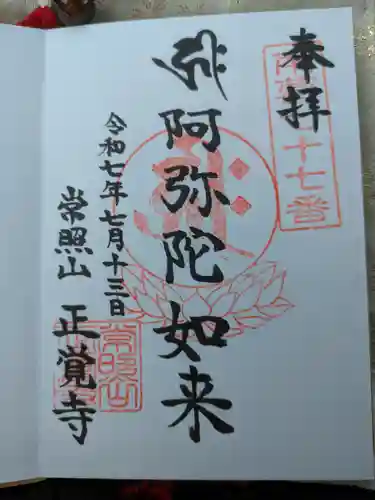 奉拝
十七番
阿弥陀如来
令和七年七月十三日
常照山
正覚寺
常照山